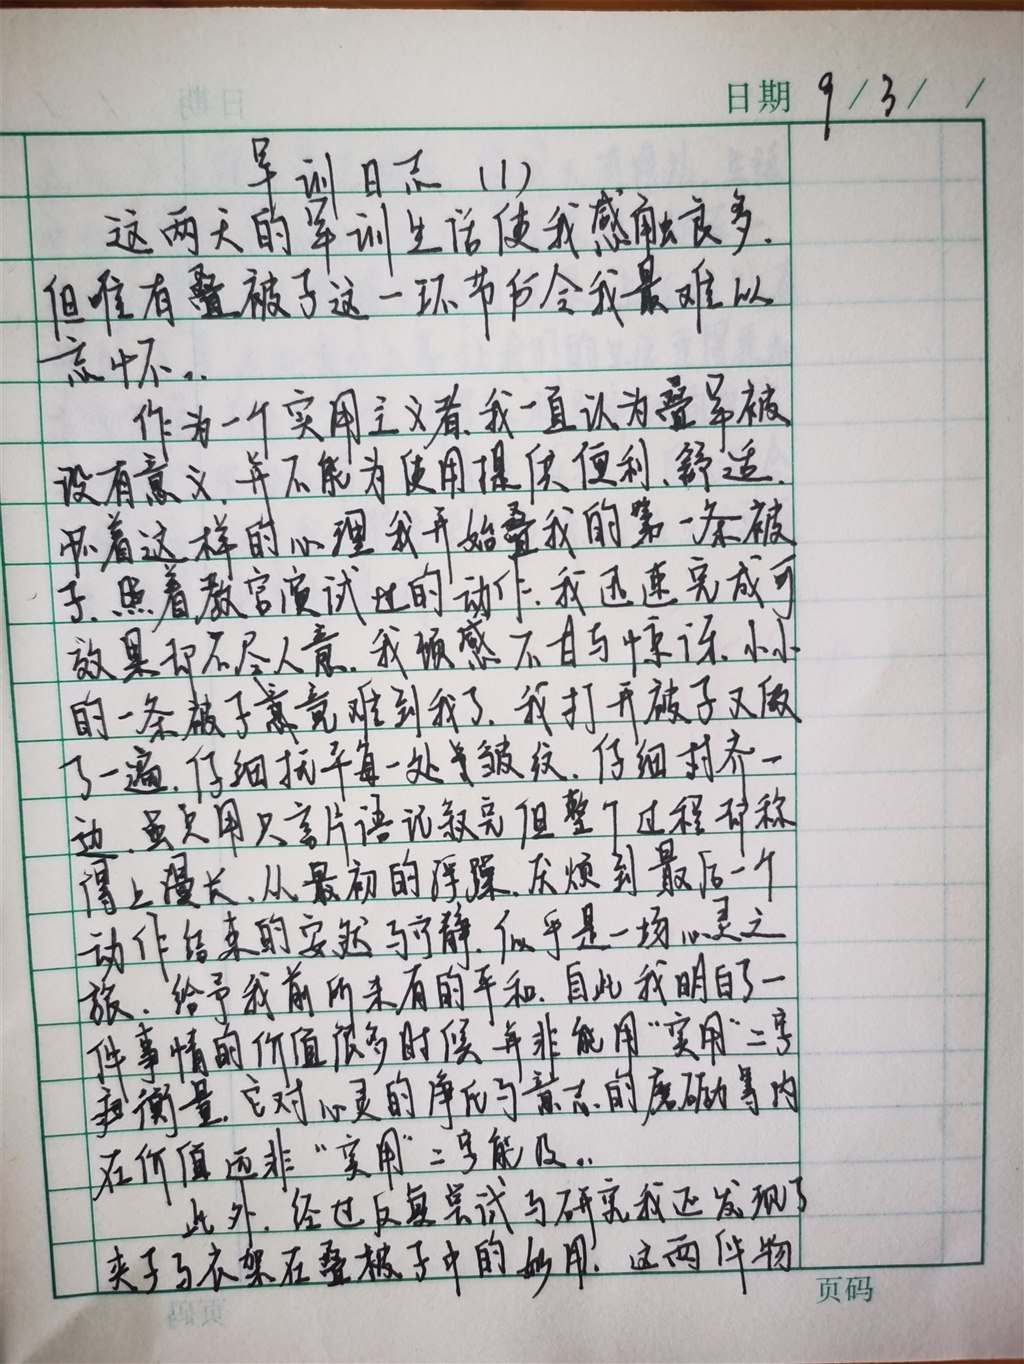 日期 9/3/ /
军训日志（1）
这两天的军训生活使我感触良多.
但唯有叠被子这一环节仍令我最难以
忘怀..
作为一个实用主义者.我一直认为叠军被
没有意义.并不能为使用提供便利、舒适.
怀着这样的心理我开始叠我的第一条被
子.照着教官演试过的动作.我迅速完成可
效果却不尽人意.我顿感不甘与惊讶.小小
的一条被子竟难到我了.我打开被子又做
了一遍.仔细抚平每一处皱纹.仔细对齐一
边.虽只用只言片语记叙完但整个过程却称
得上漫长.从最初的浮躁.厌烦到最后一个
动作结束的安然与宁静.似乎是一场心灵之
旅.给予我前所未有的平和.自此我明白了一
件事情的价值很多时候并非能用“实用”二字
衡量.它对心灵的净化与意志的磨砺等内
在价值远非“实用”二字能及..
此外.经过反复尝试与研究我还发现了
夹子与衣架在叠被子中的妙用.这两件物
页码